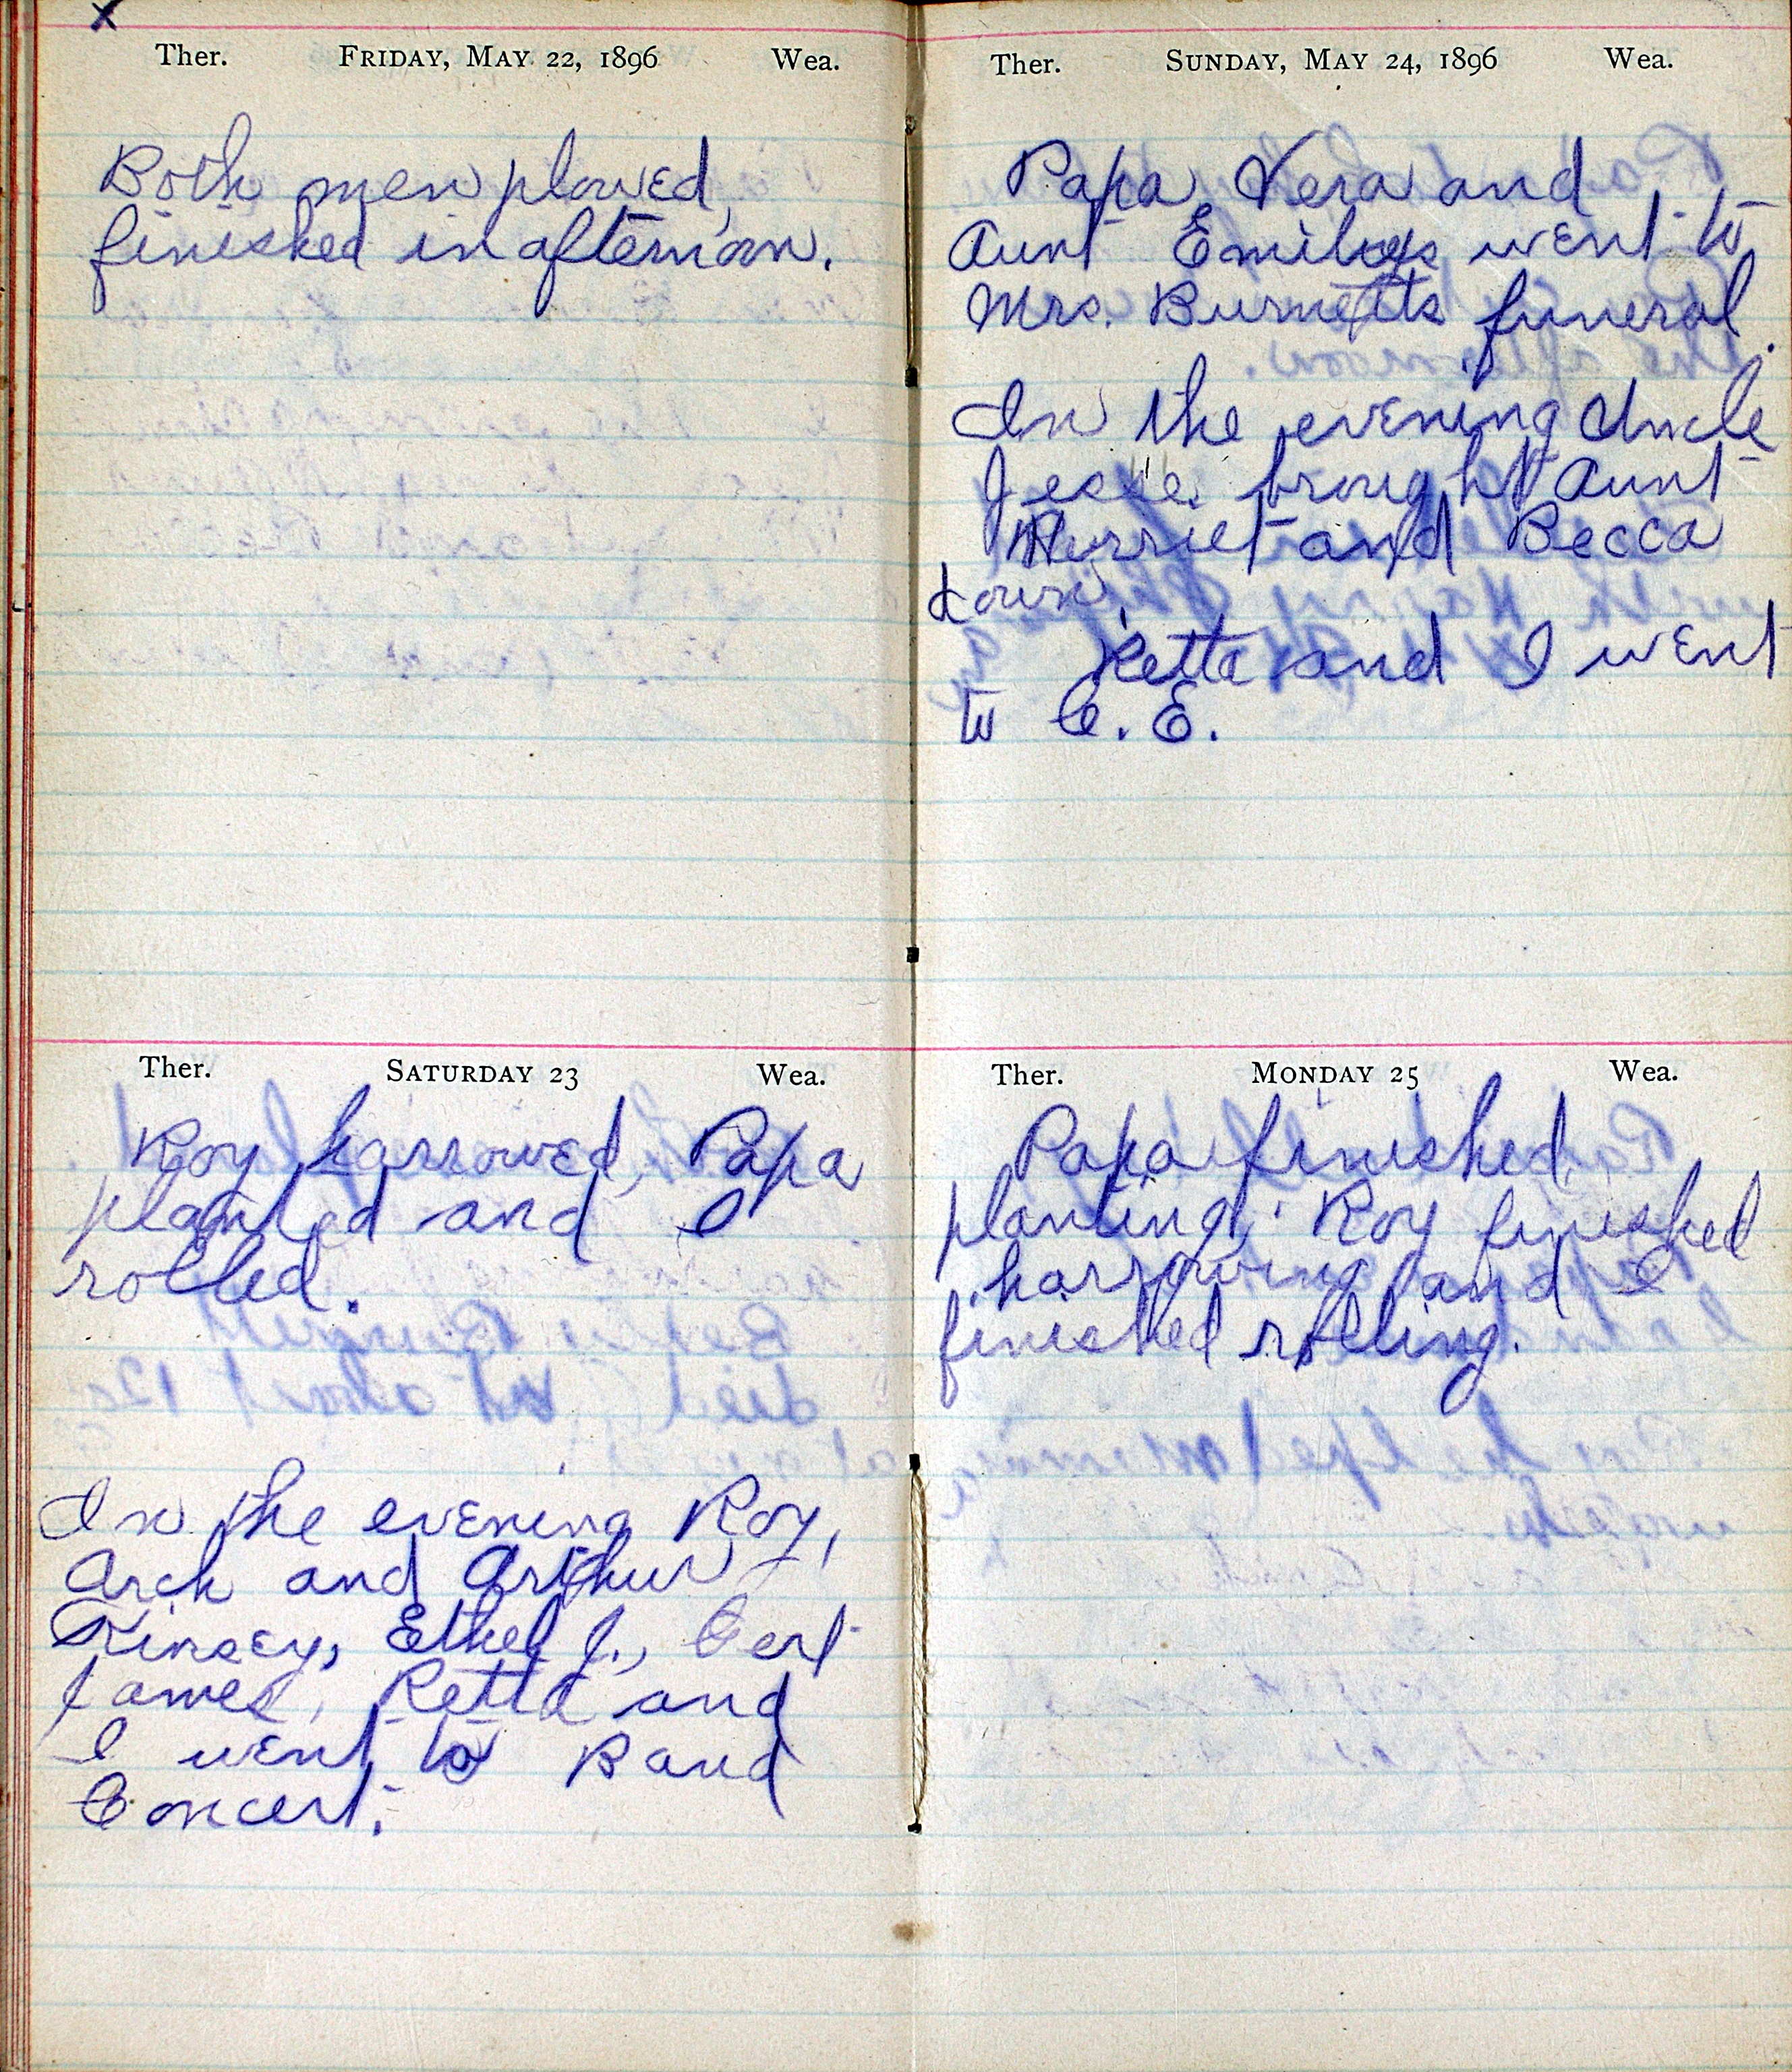 x
Ther. Friday, May 22, 1896 Wea.
Both men plowed,
finished in afternoon.
Ther. Saturday 23 Wea.
Roy harrowed, Papa
planted and I
rolled.
In the evening Roy,
Arch and Arthur
Kinsey, Ethel J., Cert
James, Retta and
I went to Band
Concert.
Ther. Sunday, May 24, 1896 Wea.
Papa, Vera and
Aunt Emilys went to
Mrs. Burnetts funeral.
In the evening Uncle
Jesse brought Aunt
Herriet and Becca
down.
Retta and I went
to C. E.
Ther. Monday 25 Wea.
Papa finished
planting. Roy finished
harrowing and I
finished rolling.